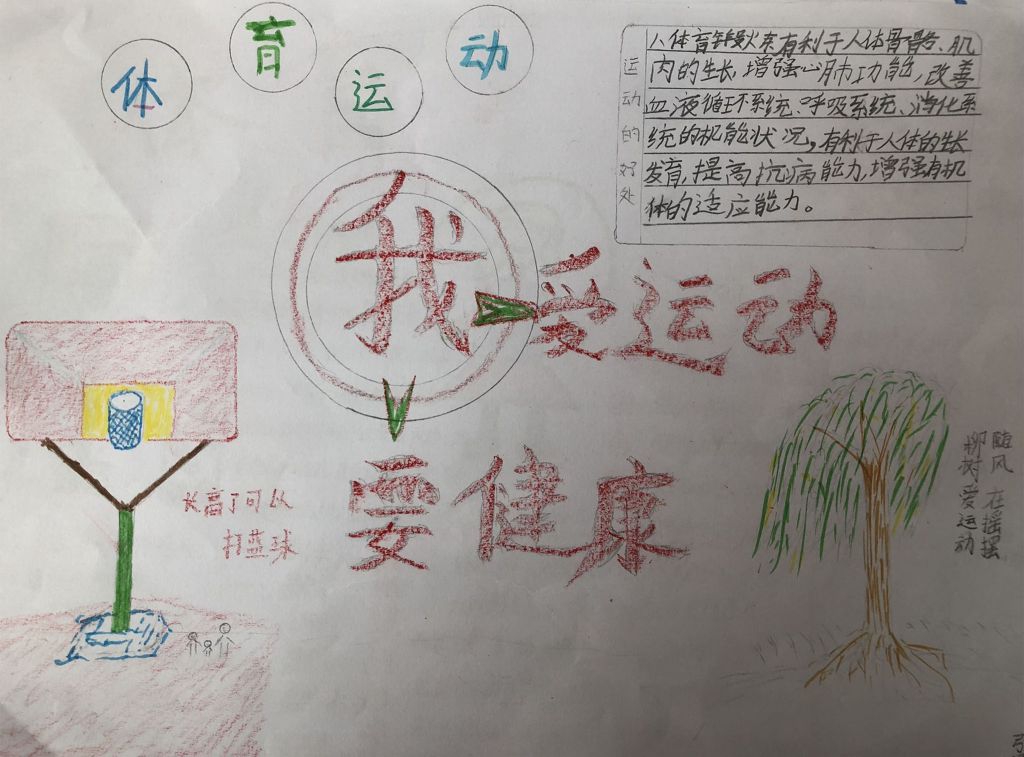 体育运动
运动的好处
1、体育锻炼有利于人体骨骼、肌
肉的生长,增强心肺功能,改善
血液循环系统、呼吸系统、消化系
统的机能状况,有利于人体的生长
发育,提高抗病能力,增强有机
体的适应能力。
我爱运动
要健康
长高了可以
打蓝球
随风 在摇摆
柳树爱运动